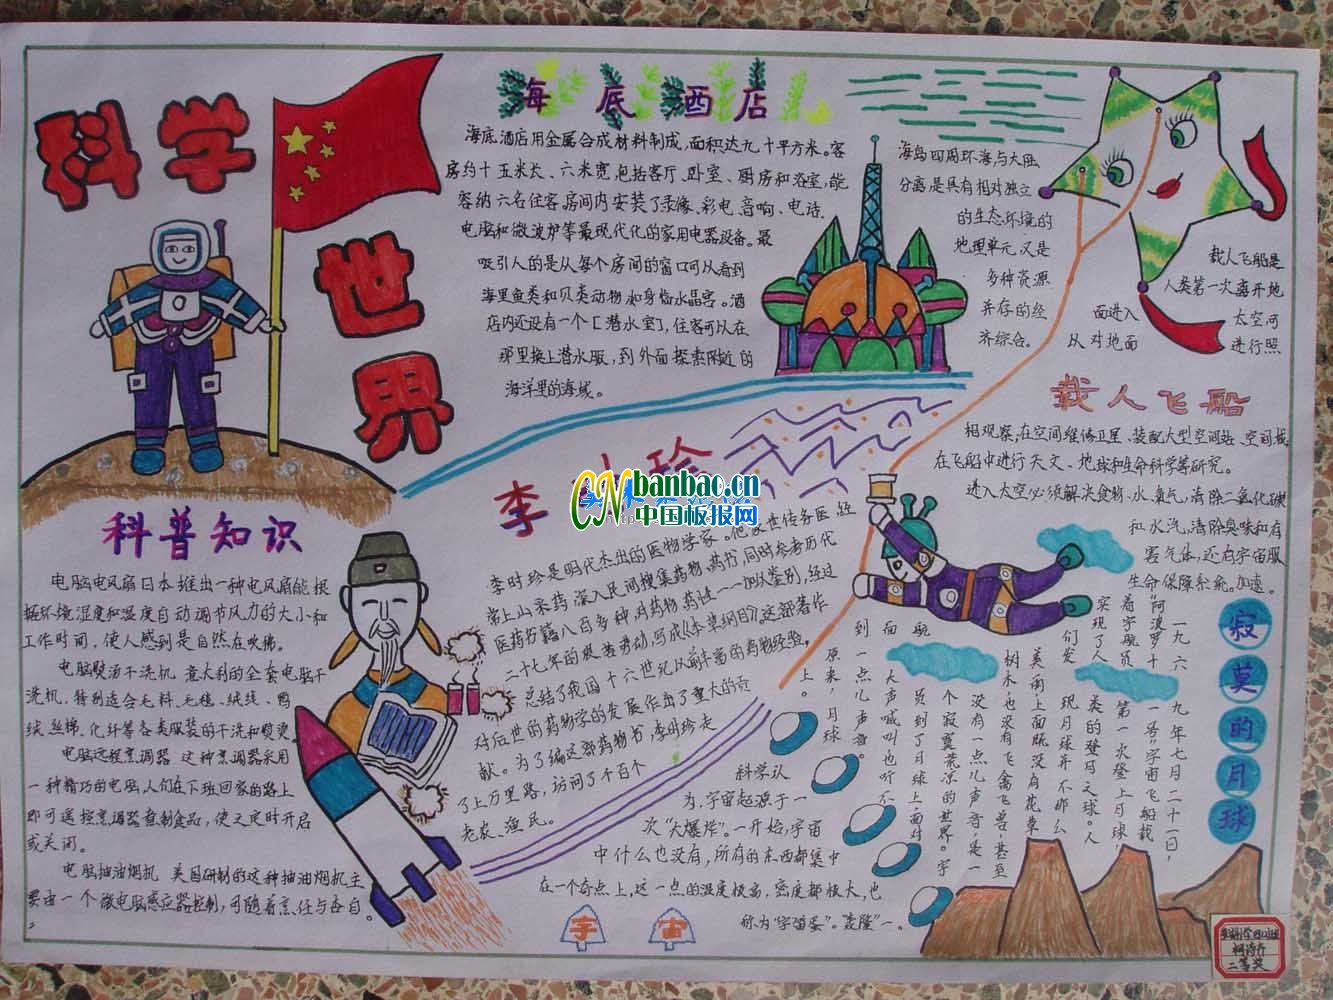 科学
世界
海底酒店
海底酒店用金属合成材料制成,面积达九十平方米。客
房约十五米长、六米宽,包括客厅、卧室、厨房和浴室,能
容纳六名住客,房间内安装了录像、彩电、音响、电话、
电脑和微波炉等最现代化的家用电器设备。最
吸引人的是从每个房间的窗口可以看到
海里鱼类和贝类动物如身临水晶宫。酒
店内还设有一个[潜水室],住客可以在
那里换上潜水服,到外面探索附近的
海洋里的海域。
海岛四周环海与大陆
分离,是具有相对独立
的生态环境的
地理单元,又是
多种资源
并存的经
济综合。
载人飞船
载人飞船是
人类第一次离开地
面进入太空可
从对地面进行照
相观察;在空间维修卫星、装配大型空间站、空间城
在飞船中进行天文、地球和生命科学等研究。
进入太空必须解决食物、水、氧气,清除二氧化碳
和水汽,清除臭味和有
害气体,还有宇宙服
生命保障系统。加速。
科普知识
电脑电风扇日本推出一种电风扇能根
据环境湿度和温度自动调节风力的大小和
工作时间,使人感到是自然在吹拂。
电脑熨汤干洗机 意大利的全套电脑干
洗机,特别适合毛料、毛毯、绒线、鸭
绒、丝棉、化纤等各类服装的干洗和熨烫
电脑远程烹调器 这种烹调器采用
一种精巧的电脑,人们在下班回家的路上
即可遥控烹调器煮制食品,使之定时开启
或关闭。
电脑抽油烟机 美国研制的这种抽油烟机主
要由一个微电脑感应器控制,可随着烹饪与各自。
李时珍
CN banbao.cn
中国板报网
李时珍是明代杰出的医物学家。他家世传务医,经
常上山采药,深入民间搜集药物、药书,同时参考历代
医药书籍八百多种,对药物药性一一加以鉴别,经过
二十七年的艰苦劳动,写成《本草纲目》,这部著作
总结了我国十六世纪以前丰富的药物经验,
对后世的药物学的发展作出了重大的贡
献。为了编这部药物书,李时珍走
了上万里路,访问了千百个
老农、渔民。
科学认
为,宇宙起源于一
次“大爆炸”。一开始,宇宙
中什么也没有,所有的东西都集中
在一个奇点上,这一点的温度极高,密度都极大,也
称为“宇宙蛋”。“轰隆”一。
宇宙
寂莫的月球
一九六九年七月二十一日,
“阿波罗十一号”宇宙飞船载
着宇航员第一次登上月球,
实现了人类的登月之球。人
们发现月球并不那么
美丽,上面既没有花草
树木也没有飞禽飞兽,甚至
没有一点儿声音,是一
个寂寞荒凉的世界。宇
航员到了月球上,面对
面大声喊叫也听不
到一点儿声音。
原来,月球
上。
二等奖